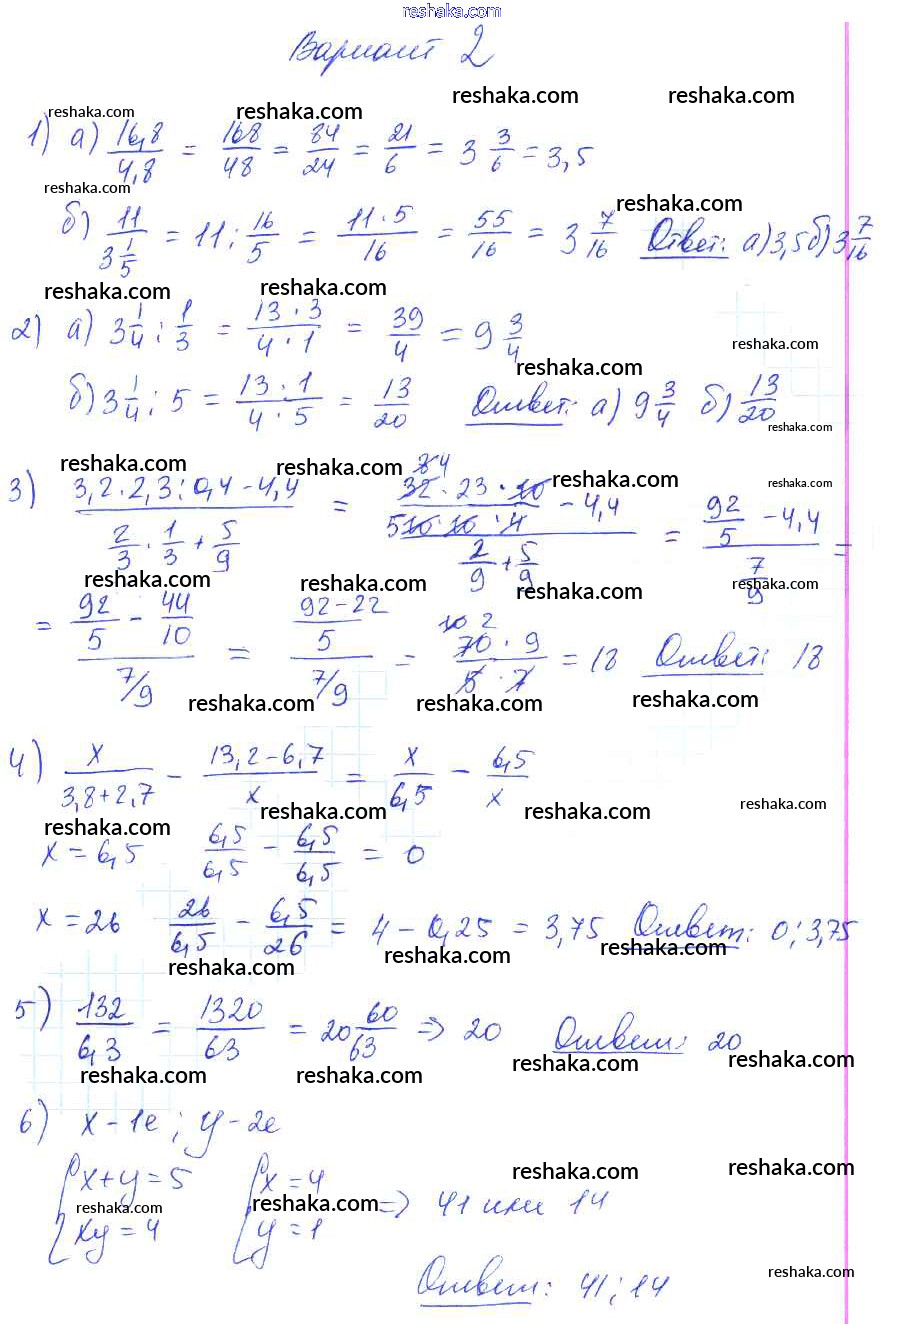 reshaka.com
Вариант 2
reshaka.com reshaka.com reshaka.com reshaka.com
1) а) 16,8/4,8 = 168/48 = 84/24 = 21/6 = 3 3/6 = 3,5
reshaka.com reshaka.com
б) 11/(3 1/5) = 11 : 16/5 = 11·5/16 = 55/16 = 3 7/16 Ответ: а) 3,5 б) 3 7/16
reshaka.com reshaka.com
2) а) 3 1/4 : 1/3 = 13·3/4·1 = 39/4 = 9 3/4
reshaka.com
reshaka.com
б) 3 1/4 : 5 = 13·1/4·5 = 13/20 Ответ: а) 9 3/4 б) 13/20
reshaka.com
reshaka.com reshaka.com reshaka.com reshaka.com
3) (3,2·2,3:0,4-4,4)/(2/3·1/3+5/9) = (32·23·10/10·10·4 - 4,4)/(2/9+5/9) = (92/5 - 4,4)/(7/9) =
8 4
5
reshaka.com reshaka.com reshaka.com reshaka.com
= (92/5 - 44/10)/(7/9) = ((92-22)/5)/(7/9) = 70·9/5·7 = 18 Ответ: 18
10 2
reshaka.com reshaka.com reshaka.com
4) x/(3,8+2,7) - (13,2-6,7)/x = x/6,5 - 6,5/x
reshaka.com reshaka.com reshaka.com reshaka.com
x = 6,5 6,5/6,5 - 6,5/6,5 = 0
x = 26 26/6,5 - 6,5/26 = 4 - 0,25 = 3,75 Ответ: 0; 3,75
reshaka.com reshaka.com reshaka.com
5) 132/6,3 = 1320/63 = 20 60/63 => 20 Ответ: 20
reshaka.com reshaka.com reshaka.com reshaka.com
6) x - 1е; y - 2е
{x+y=5 {x=4
reshaka.com reshaka.com reshaka.com reshaka.com
xy=4 y=1 => 41 или 14
reshaka.com
Ответ: 41; 14